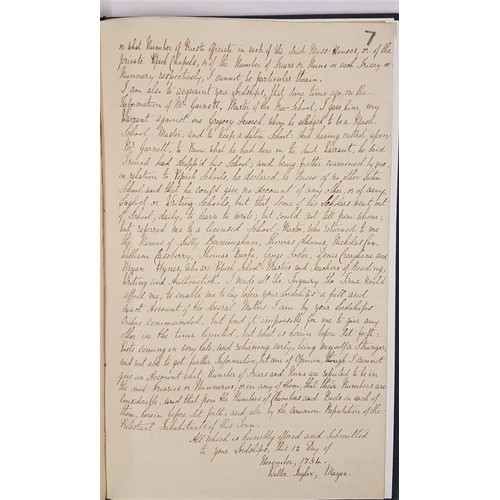 7
or what Number of Priests officiate in each of the said Mass Houses, or of the
Private Popish Chapels, or of the Number of Friars or Nuns in each Friary or
Nunnery respectively, I cannot be particular therein.
I am also to acquaint your Lordships, that some time ago, on the
Information of Mr. Garnett, Master of the Free-School, I gave him my
Warrant against one Gregory French, whom he alledged to be a Popish
School-Master, and to keep a Latin School. And having called upon
Mr. Garnett, to know what he had done in the said Warrant, he said
French had dropp'd his School; and being further examined by me,
in relation to Popish Schools, he declared, he knew of no other Latin
School and that he could give no Account of any other, or of any
English or Writing Schools, but that some of his Scholars went out
of School, daily, to learn to write; but could not tell from whom;
but referred me to a licensed School-Master, who returned to me
the Names of Birmingham, Thomas Adams, Nicholas Fox,
William Thomas Burke, George Creaghane and
Bryan Hynes, who are Popish School-Masters and Teachers of Reading,
Writing and Arithmetick. I made all the Inquiry the Time would
afford me, to enable me to lay before your Lordships a full and
Exact Account of the several Matters I am by your Lordships'
Order commanded, but find it impossible for me to give any
other in the time limited, but what is herein before set forth;
Posts coming in very late, and returning early, being myself a Stranger,
and not able to get further Information, but am of Opinion, though I cannot
give an Account what Number of Friars and Nuns are reputed to be in
the said Friaries or Nunneries, or in any of them, that their Numbers are
considerable, and that from the Number of Chambers and Beds in each of
them, herein before set forth, and also by the common Reputation of the
Protestant Inhabitants of this Town.
All which is humbly offered and submitted
to your Lordships, this 12 Day of
November, 1731.
Walter Taylor, Mayor.